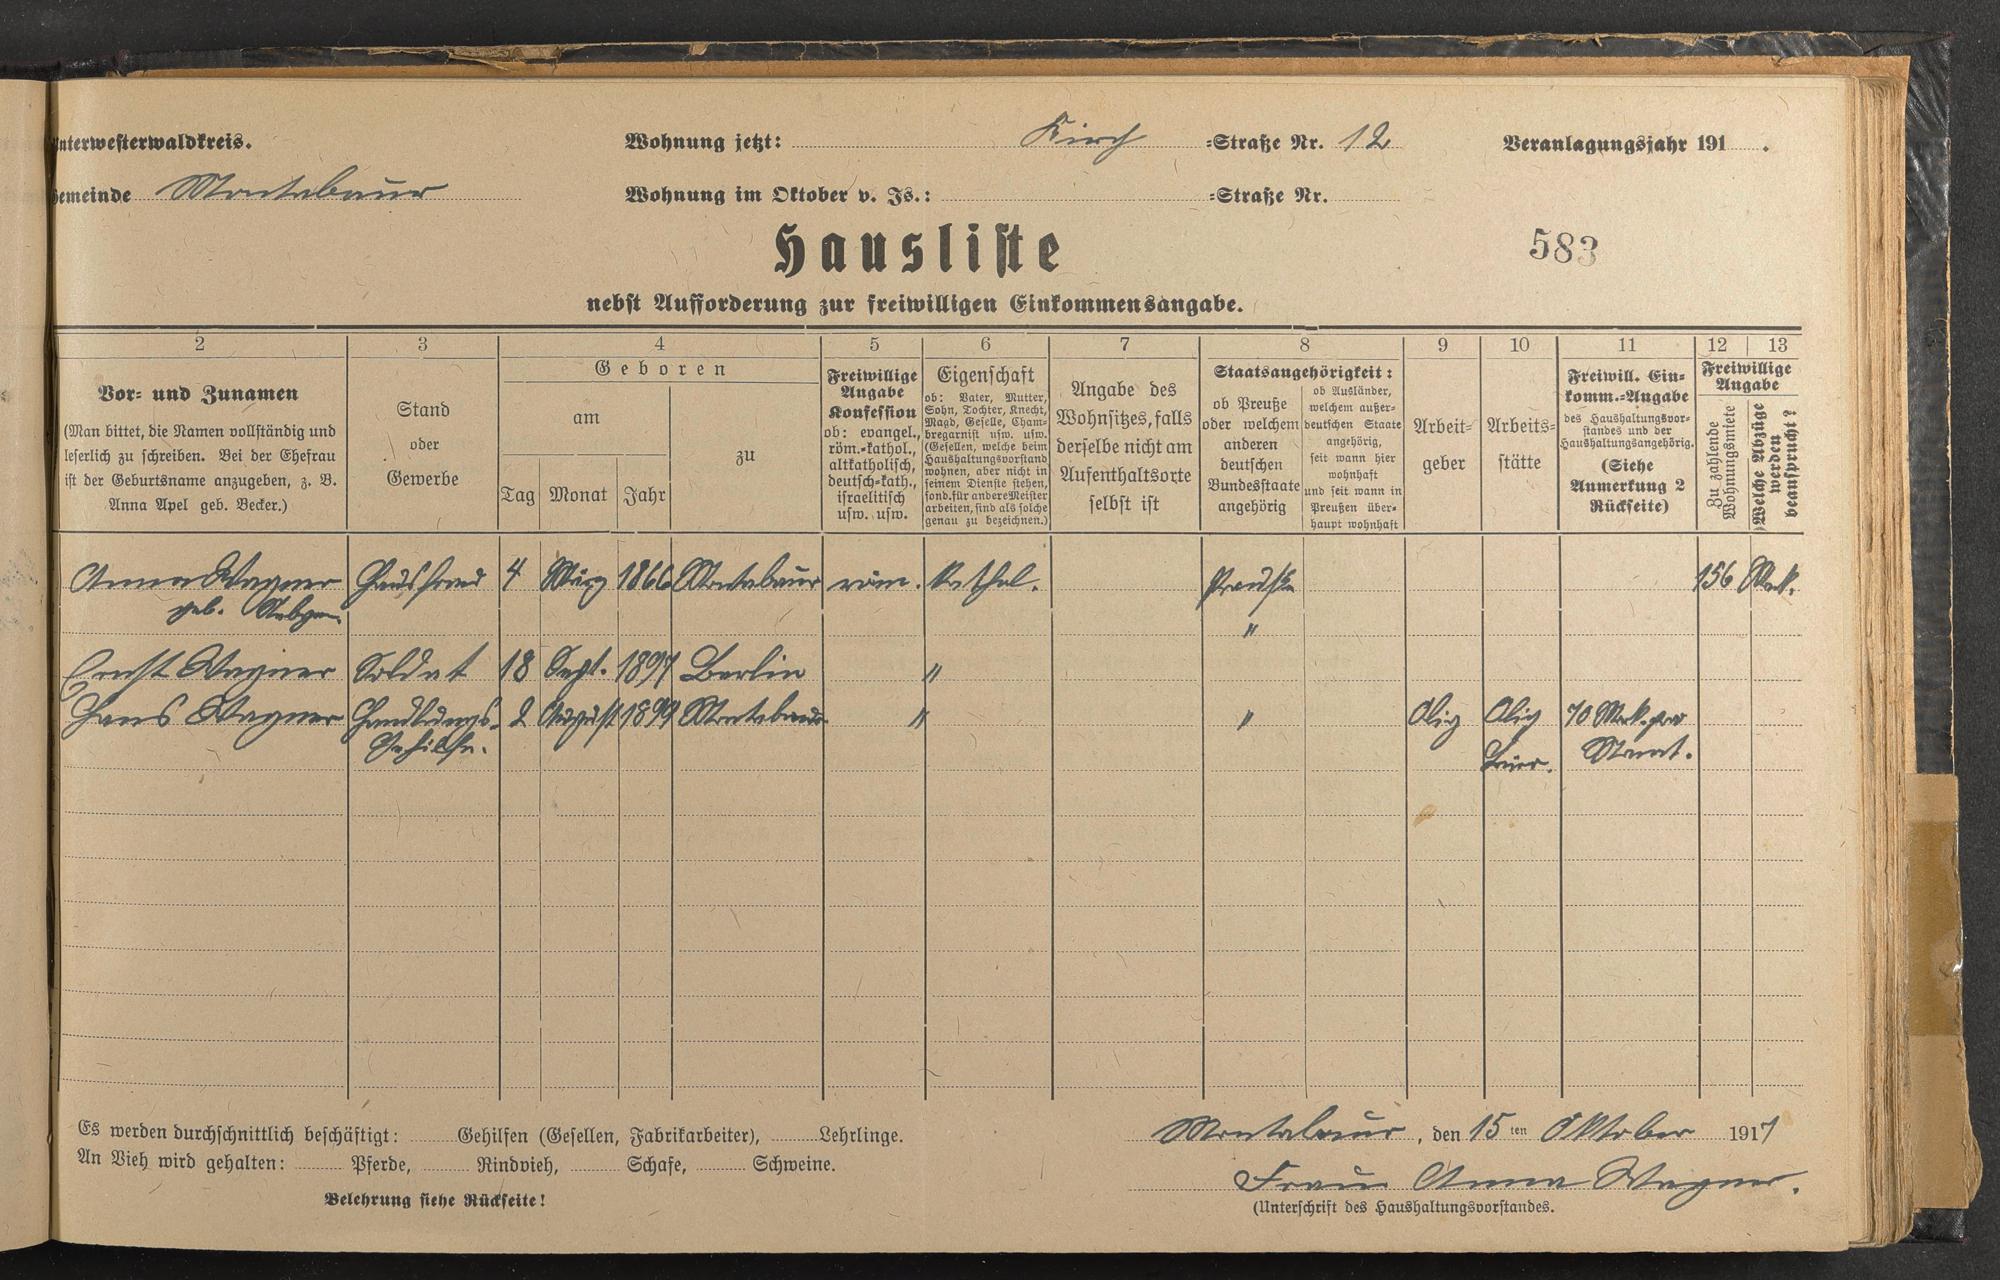 Unterwesterwaldkreis.
Wohnung jetzt: Kirch -Straße Nr. 12
Veranlagungsjahr 191 .
Gemeinde Montabaur
Wohnung im Oktober v. Js.: -Straße Nr.
Hausliste
583
nebst Aufforderung zur freiwilligen Einkommensangabe.
2 3 4 5 6 7 8 9 10 11 12 13
Vor- und Zunamen
(Man bittet, die Namen vollständig und
leserlich zu schreiben. Bei der Ehefrau
ist der Geburtsname anzugeben, z. B.
Anna Apel geb. Becker.)
Stand
oder
Gewerbe
Geboren
am
Tag Monat Jahr
zu
Freiwillige
Angabe
Konfession
ob: evangel.,
röm.-kathol.,
altkatholisch,
deutsch-kath.,
israelitisch
usw. usw.
Eigenschaft
ob: Vater, Mutter,
Sohn, Tochter, Knecht,
Magd, Geselle, Cham-
bregarnist usw. usw.
(Gesellen, welche beim
Haushaltungsvorstand
wohnen, aber nicht in
seinem Dienste stehen,
sond. für andere Meister
arbeiten, sind als solche
genau zu bezeichnen.)
Angabe des
Wohnsitzes, falls
derselbe nicht am
Aufenthaltsorte
selbst ist
Staatsangehörigkeit:
ob Preuße
oder welchem
anderen
deutschen
Bundesstaate
angehörig
ob Ausländer,
welchem außer-
deutschen Staate
angehörig,
seit wann hier
wohnhaft
und seit wann in
Preußen über-
haupt wohnhaft
Arbeit-
geber
Arbeits-
stätte
Freiwill. Ein-
komm.-Angabe
des Haushaltungsvor-
standes und der
Haushaltungsangehörig.
(Siehe
Anmerkung 2
Rückseite)
Freiwillige
Angabe
Zu zahlende
Wohnungsmiete
Welche Abzüge
werden
beansprucht?
Anna Wagner Hausfrau 4 März 1866 Montabaur röm. kathol. Preuße 156 Mk.
geb.
"
Ernst Wagner Soldat 18 Sept. 1897 Berlin "
Hans Wagner Handlungs- 2 August 1899 Montabaur " " Olig Olig 70 Mk. pro
Gehilfe. Monat.
Es werden durchschnittlich beschäftigt: Gehilfen (Gesellen, Fabrikarbeiter), Lehrlinge.
Montabaur, den 15ten Oktober 1917
An Vieh wird gehalten: Pferde, Rindvieh, Schafe, Schweine.
Frau Anna Wagner.
Belehrung siehe Rückseite!
(Unterschrift des Haushaltungsvorstandes.